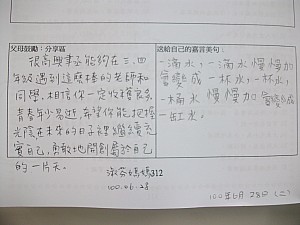 父母鼓勵：分享區
很高興書丞能夠在三、四
年級遇到這麼棒的老師和
同學，相信你一定收穫良多，
青春年少易逝，希望你能把握
光陰在未來的日子裡繼續充
實自己，勇敢地開創屬於自己
的一片天。
淑芬媽媽312
100.06.28
送給自己的嘉言美句：
一滴水，一滴水慢慢加
會變成一杯水，一杯水，
一桶水慢慢加會變成
一缸水。
100年6月28日(二)